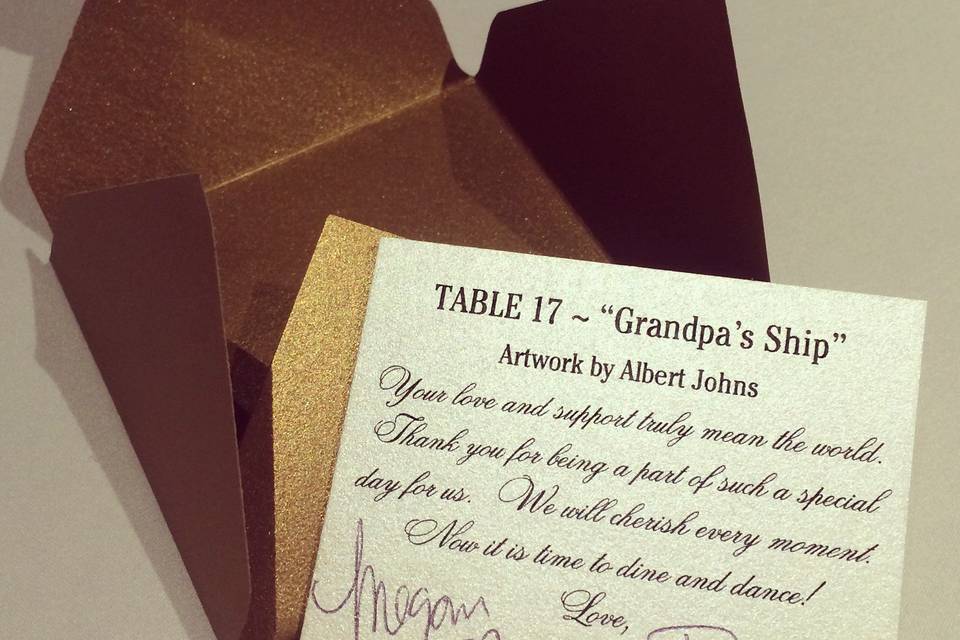 TABLE 17 ~ “Grandpa’s Ship”
Artwork by Albert Johns
Your love and support truly mean the world.
Thank you for being a part of such a special
day for us. We will cherish every moment.
Now it is time to dine and dance!
Love,
Megan